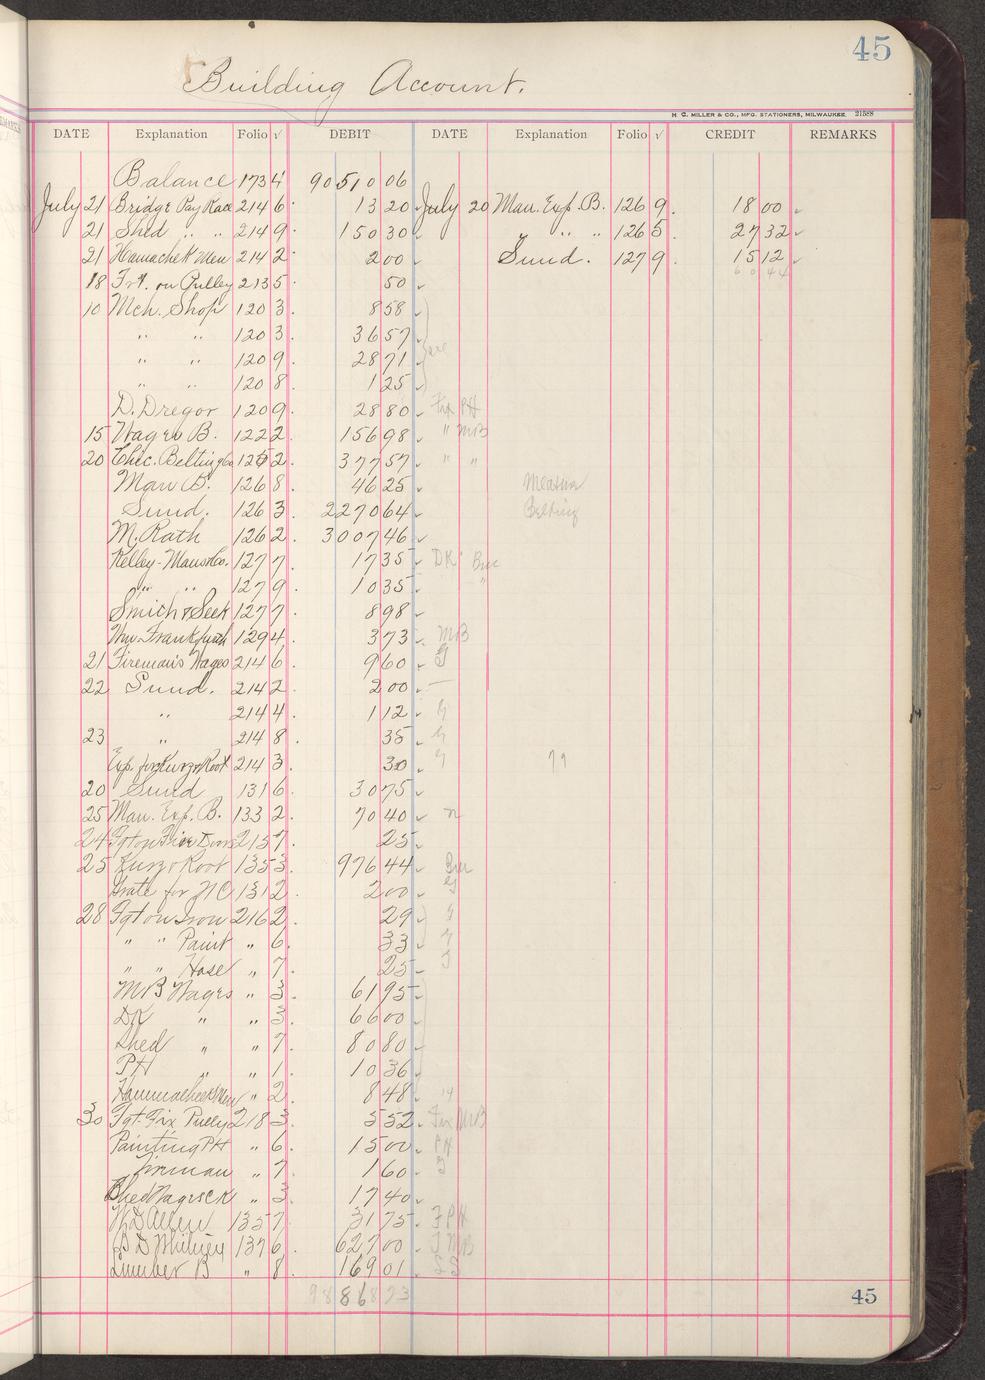 45
Building Account.
H. G. MILLER & CO., MFG. STATIONERS, MILWAUKEE. 21588
DATE Explanation Folio √ DEBIT DATE Explanation Folio √ CREDIT REMARKS
Balance 173 4 90510 06
July 21 Bridge Pay Race 214 6 13 20 July 20 Man. Exp. B. 126 9 18 00
21 Shed " " 214 9 150 30 " " " 126 5 27 32
21 Hamachek Men 214 2 2 00 Sund. 127 9 15 12
18 Frt. on Pulley 213 5 50 60 44
10 Mch. Shop 120 3 8 58
" " 120 3 36 57
" " 120 9 28 71
" " 120 8 1 25
D. Dregor 120 9 28 80 Fix PH
15 Wages B. 122 2 156 98 " MB
20 Chic. Belting Co 125 2 377 57 " "
Man B. 126 8 46 25
Sund. 126 3 2270 64 Belting
M. Rath 126 2 3007 46
Kelley-Maus & Co. 127 7 17 35 DK
" " 127 9 10 35 "
Smith & Seek 127 7 8 98
Wm. Frankfurth 129 4 3 73 MB
21 Fireman's Wages 214 6 9 60
22 Sund. 214 2 2 00
" 214 4 1 12
23 " 214 8 35
Exp. for Kurz & Root 214 3 30
20 Sund 131 6 30 75
25 Man. Exp. B. 133 2 70 40
24 Fgt on Fire Doors 213 7 25
25 Kurz & Root 135 3 976 44
Grate for NC 131 2 2 00
28 Fgt on Iron 216 2 29
" " Paint " 6 33
" " Hose " 7 25
MB Wages " 3 61 95
DK " " 3 66 00
Shed " " 7 80 80
PH " " 1 10 36
Hammachek Men " 2 8 48
30 Fgt. Fix Pully 218 3 5 52 Fix MB
Painting PH " 6 15 00 PH
Fireman " 7 1 60
Shed Wages CK " 3 17 40
W D Allen 135 7 31 75 F PH
B D Whitney 137 6 627 00 MB
Lumber B " 8 169 01
98868 23
45